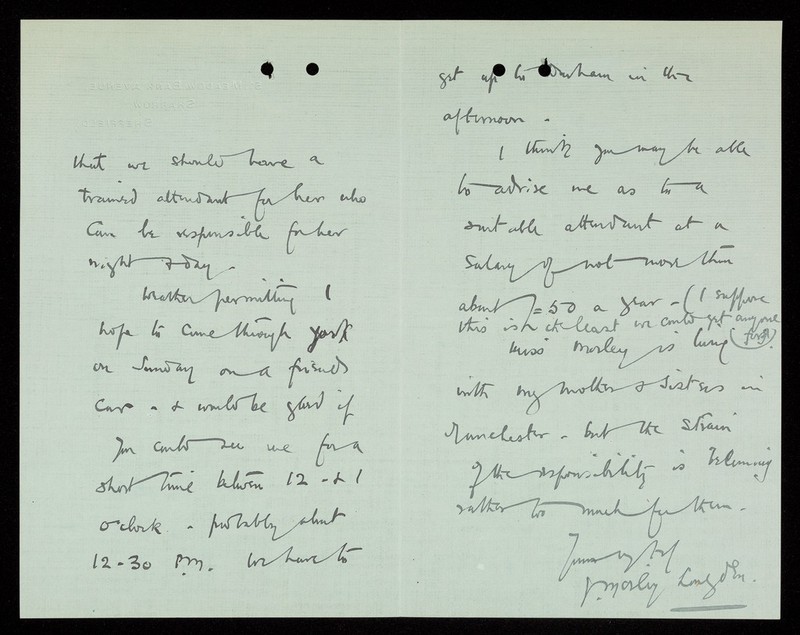 that we should have a
trained attendant for her who
can be responsible for her
night & day.
Weather permitting I
hope to come through York
on Sunday on a friends
car - & would be glad if
you could see me for a
short time between 12 - & 1
o'clock - probably about
12-30 P.M. We have to
get up to Durham in the
afternoon -
I think you may be able
to advise me as to a
suitable attendant at a
salary of not more than
about £50 a year - (I suppose
this is the least we could get anyone
for)
Miss Morley is living
with my mother & sisters in
Manchester - but the strain
of the responsibility is becoming
rather too much for them -
Yours
Morley Longden.